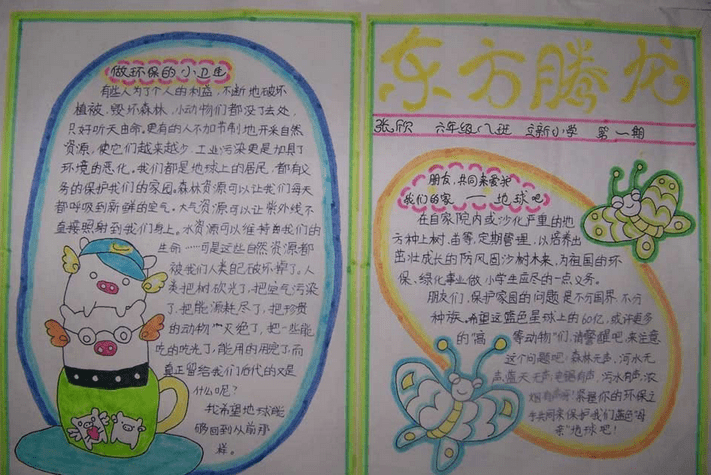 做环保的小卫生
有些人为了个人的利益,不断地破坏
植被,毁坏森林,小动物们都没了去处,
只好听天由命。更有的人不加节制地开采自然
资源,使它们越来越少。工业污染更是加具了
环境的恶化。我们都是地球上的居民,都有义
务的保护我们的家园。森林资源可以让我们每天
都呼吸到新鲜的空气。大气资源可以让紫外线不
直接照射到我们身上。水资源可以维持着我们的
生命……可是这些自然资源都
被我们人类自己破坏掉了。人
类把树砍光了,把空气污染
了,把能源耗尽了,把珍贵
的动物灭绝了,把一些能
吃的吃光了,能用的用完了,而
真正留给我们后代的又是
什么呢?
我希望地球能
够回到从前那
样。
东方腾龙
张欣 六年级八班 立新小学 第一期
朋友,共同来爱护
我们的家——地球吧
在自家院内或沙化严重的地
方种上树、苗等,定期管理,以培养出
茁壮成长的防风固沙树木来,为祖国的环
保、绿化事业做小学生应尽的一点义务。
朋友们,保护家园的问题是不分国界、不分
种族。希望这蓝色星球上的60亿,或许更多
的“高等动物”们,请警醒吧,来注意
这个问题吧:森林无声,河水无
声,蓝天无声;电锯有声,污水有声,浓
烟有声啊!掌握你的环保之
手共同来保护我们蓝色“母
亲”地球吧!